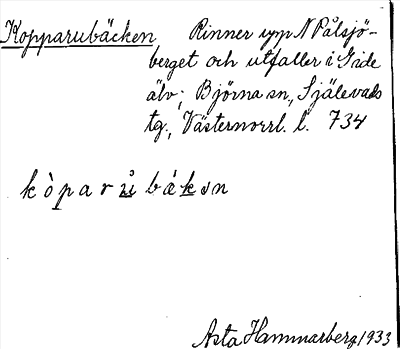 Kopparubäcken Rinner upp N Pålsjö-
berget och utfaller i Gide
älv; Björna sn, Själevads
tg., Västernorrl. l. 734
kòparù bákən
Asta Hammarberg 1933